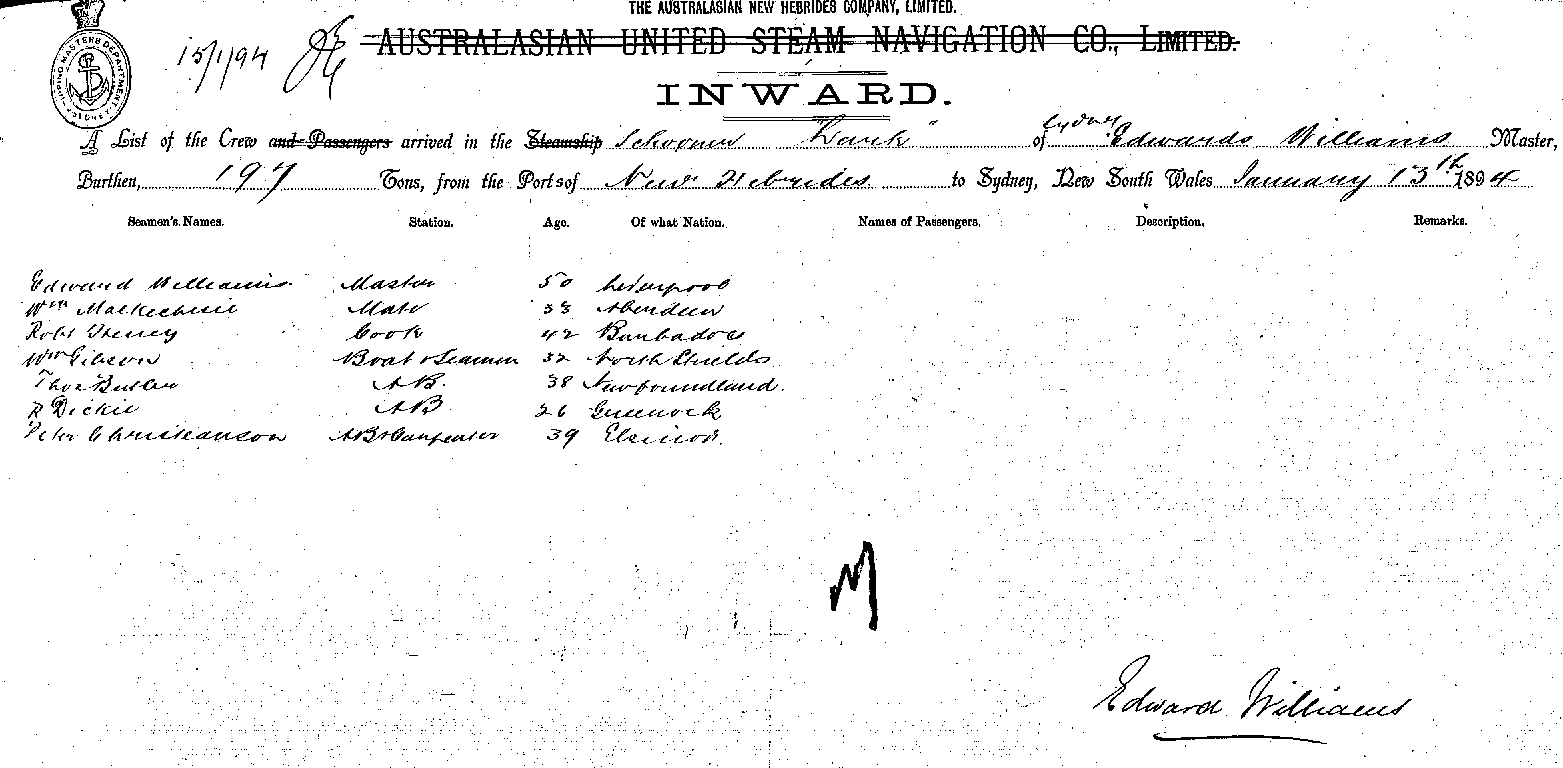 THE AUSTRALASIAN NEW HEBRIDES COMPANY, LIMITED.
15/1/94
AUSTRALASIAN UNITED STEAM NAVIGATION CO., LIMITED.
SHIPPING MASTERS DEPARTMENT SYDNEY
INWARD.
A List of the Crew and Passengers arrived in the Steamship Schooner "Lark" of Sydney Edwards Williams Master,
Burthen, 197 Tons, from the Ports of New Hebrides to Sydney, New South Wales January 13th 1894
Seamen's Names. Station. Age. Of what Nation. Names of Passengers. Description. Remarks.
Edward Williams Master 50 Liverpool
Wm Mate 33 Aberdeen
Robt Cook 42 Barbados
Wm Gibson Boat & Seaman 32 North Shields
Thos Butler AB. 38 Newfoundland.
R Dickie AB 26 Greenock
Peter Christianson AB & Carpenter 39 Elsinor.
M
Edward Williams